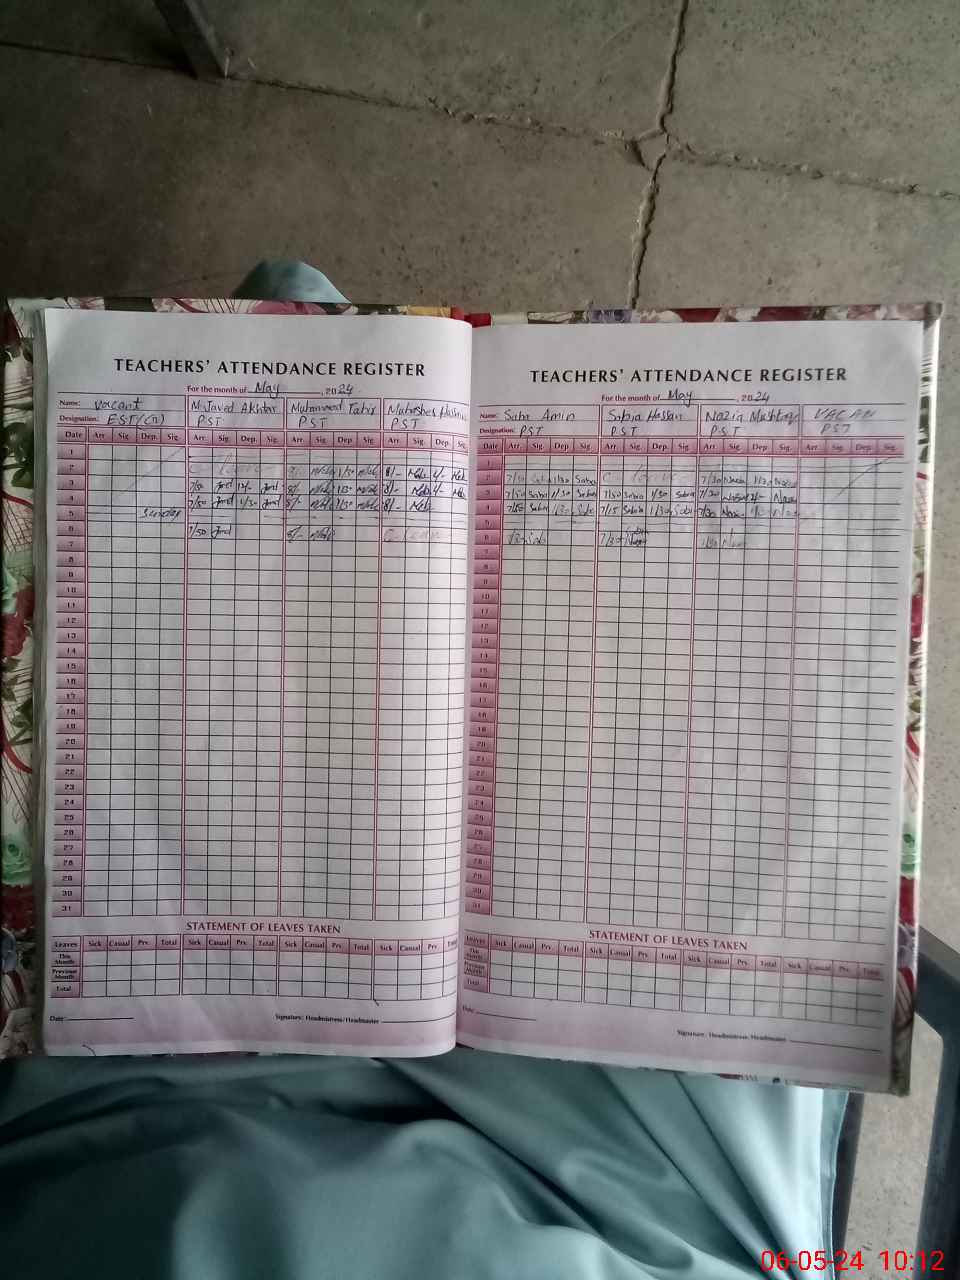 TEACHERS' ATTENDANCE REGISTER
For the month of May, 2024
Name: Vacant M. Javed Akhtar Muhammad Tahir
Designation: EST(G) PST PST PST
Date Arr. Sig. Dep. Sig. Arr. Sig. Dep. Sig. Arr. Sig. Dep. Sig. Arr. Sig. Dep. Sig.
1
2 C leave 8/- 1/30 8/-
3 7/50 12/- 8/- 1/30 8/-
4 7/50 1/30 8/- 1/30 8/-
5 Sunday
6 7/50 8/- C. leave
7
8
9
10
11
12
13
14
15
16
17
18
19
20
21
22
23
24
25
26
27
28
29
30
31
STATEMENT OF LEAVES TAKEN
Leaves Sick Casual Prv. Total Sick Casual Prv. Total Sick Casual Prv. Total Sick Casual Prv. Total
This Month
Previous Month
Total
Date: Signature: Headmistress/Headmaster
TEACHERS' ATTENDANCE REGISTER
For the month of May, 2024
Name: Saba Amin Sabra Hassan Nazia Mushtaq VACAN
Designation: PST PST PST PST
Date Arr. Sig. Dep. Sig. Arr. Sig. Dep. Sig. Arr. Sig. Dep. Sig. Arr. Sig. Dep. Sig.
1
2 7/30 Saba 1/30 Saba C leave 7/30 Nazia 1/30 Nazia
3 7/50 Saba 1/30 Saba 7/50 Sabra 1/30 Sabra 7/30
4 7/50 Saba 1/30 7/15 Sabra 1/30 7/30
5
6 7/30 Saba 7/30 7/30
7
8
9
10
11
12
13
14
15
16
17
18
19
20
21
22
23
24
25
26
27
28
29
30
31
STATEMENT OF LEAVES TAKEN
Leaves Sick Casual Prv. Total Sick Casual Prv. Total Sick Casual Prv. Total Sick Casual Prv. Total
This Month
Previous Month
Total
Date: Signature: Headmistress/Headmaster
06-05-24 10:12